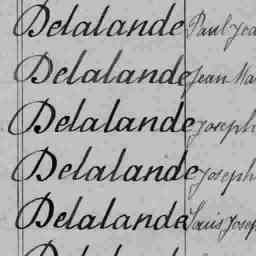 Delalande Paul Jea
Delalande Jean Ma
Delalande Joseph
Delalande Joseph
Delalande Louis Josep